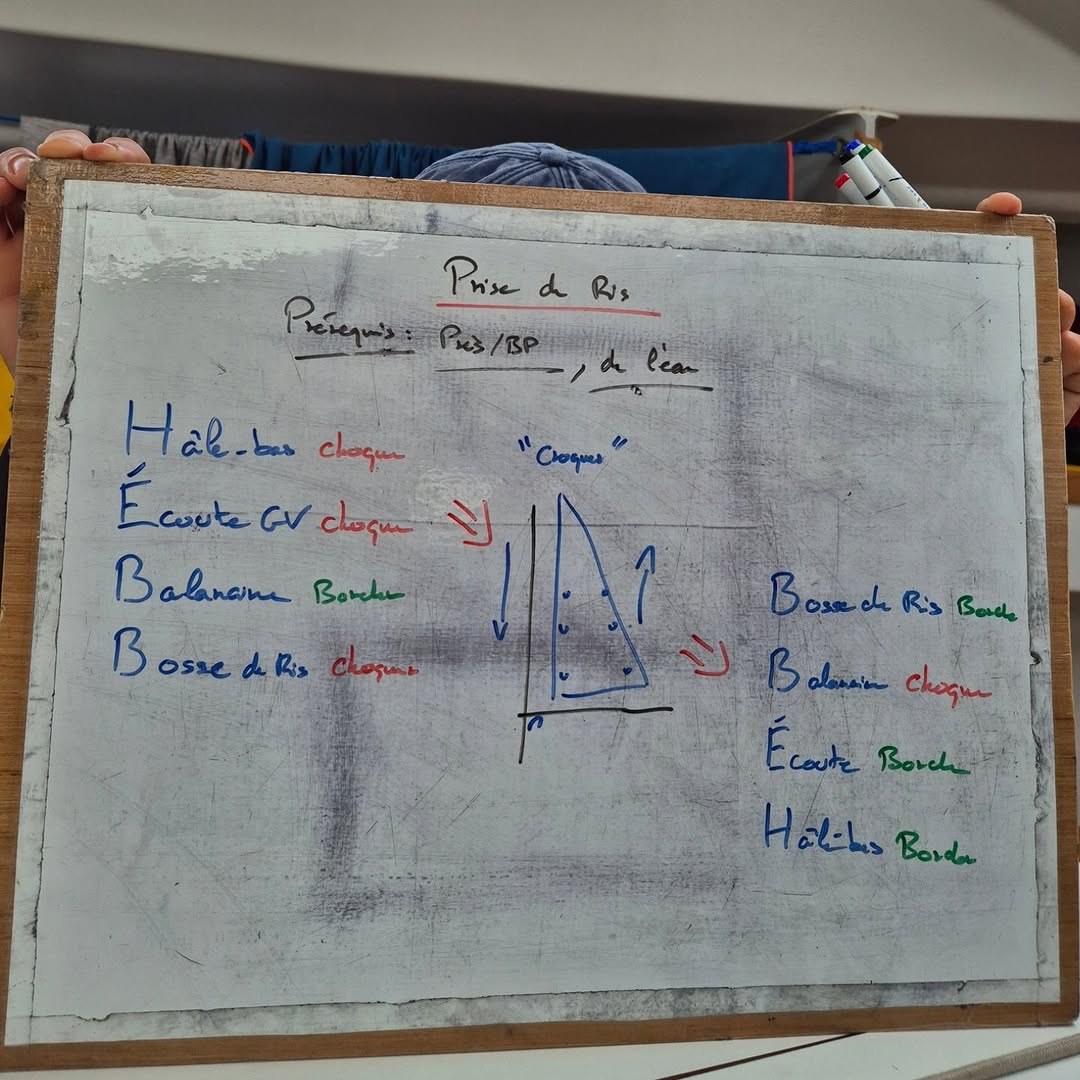 Prise de Ris
Prérequis : Près/BP, de l'eau
Hâle-bas choquer
Écoute GV choquer
Balancine Border
Bosse de Ris choquer
"Croquer"
Bosse de Ris Border
Balancine choquer
Écoute Border
Hâle-bas Border